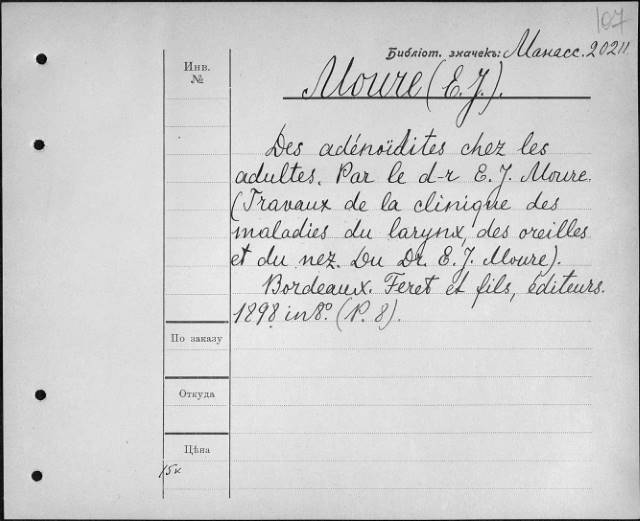 107
Библіот. значекъ: Манасс. 20211.
Инв.
№
Moure (E. J.).
Des adénoïdites chez les
adultes. Par le d-r E. J. Moure.
(Travaux de la clinique des
maladies du larynx, des oreilles
et du nez. Du Dr. E. J. Moure).
Bordeaux. Feret et fils, éditeurs.
1898. in 8°. (P. 8).
По заказу
Откуда
Цѣна
15к